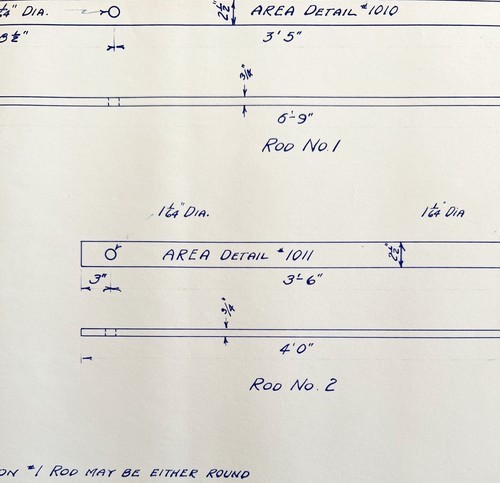 1/64" DIA.
2 1/2"
AREA DETAIL #1010
8 1/2"
3' 5"
3/4"
6'-9"
ROD NO. 1
1 1/64" DIA.
1 1/64" DIA
AREA DETAIL #1011
2 1/2"
3"
3'-6"
3/4"
4'0"
ROD NO. 2
ON #1 ROD MAY BE EITHER ROUND